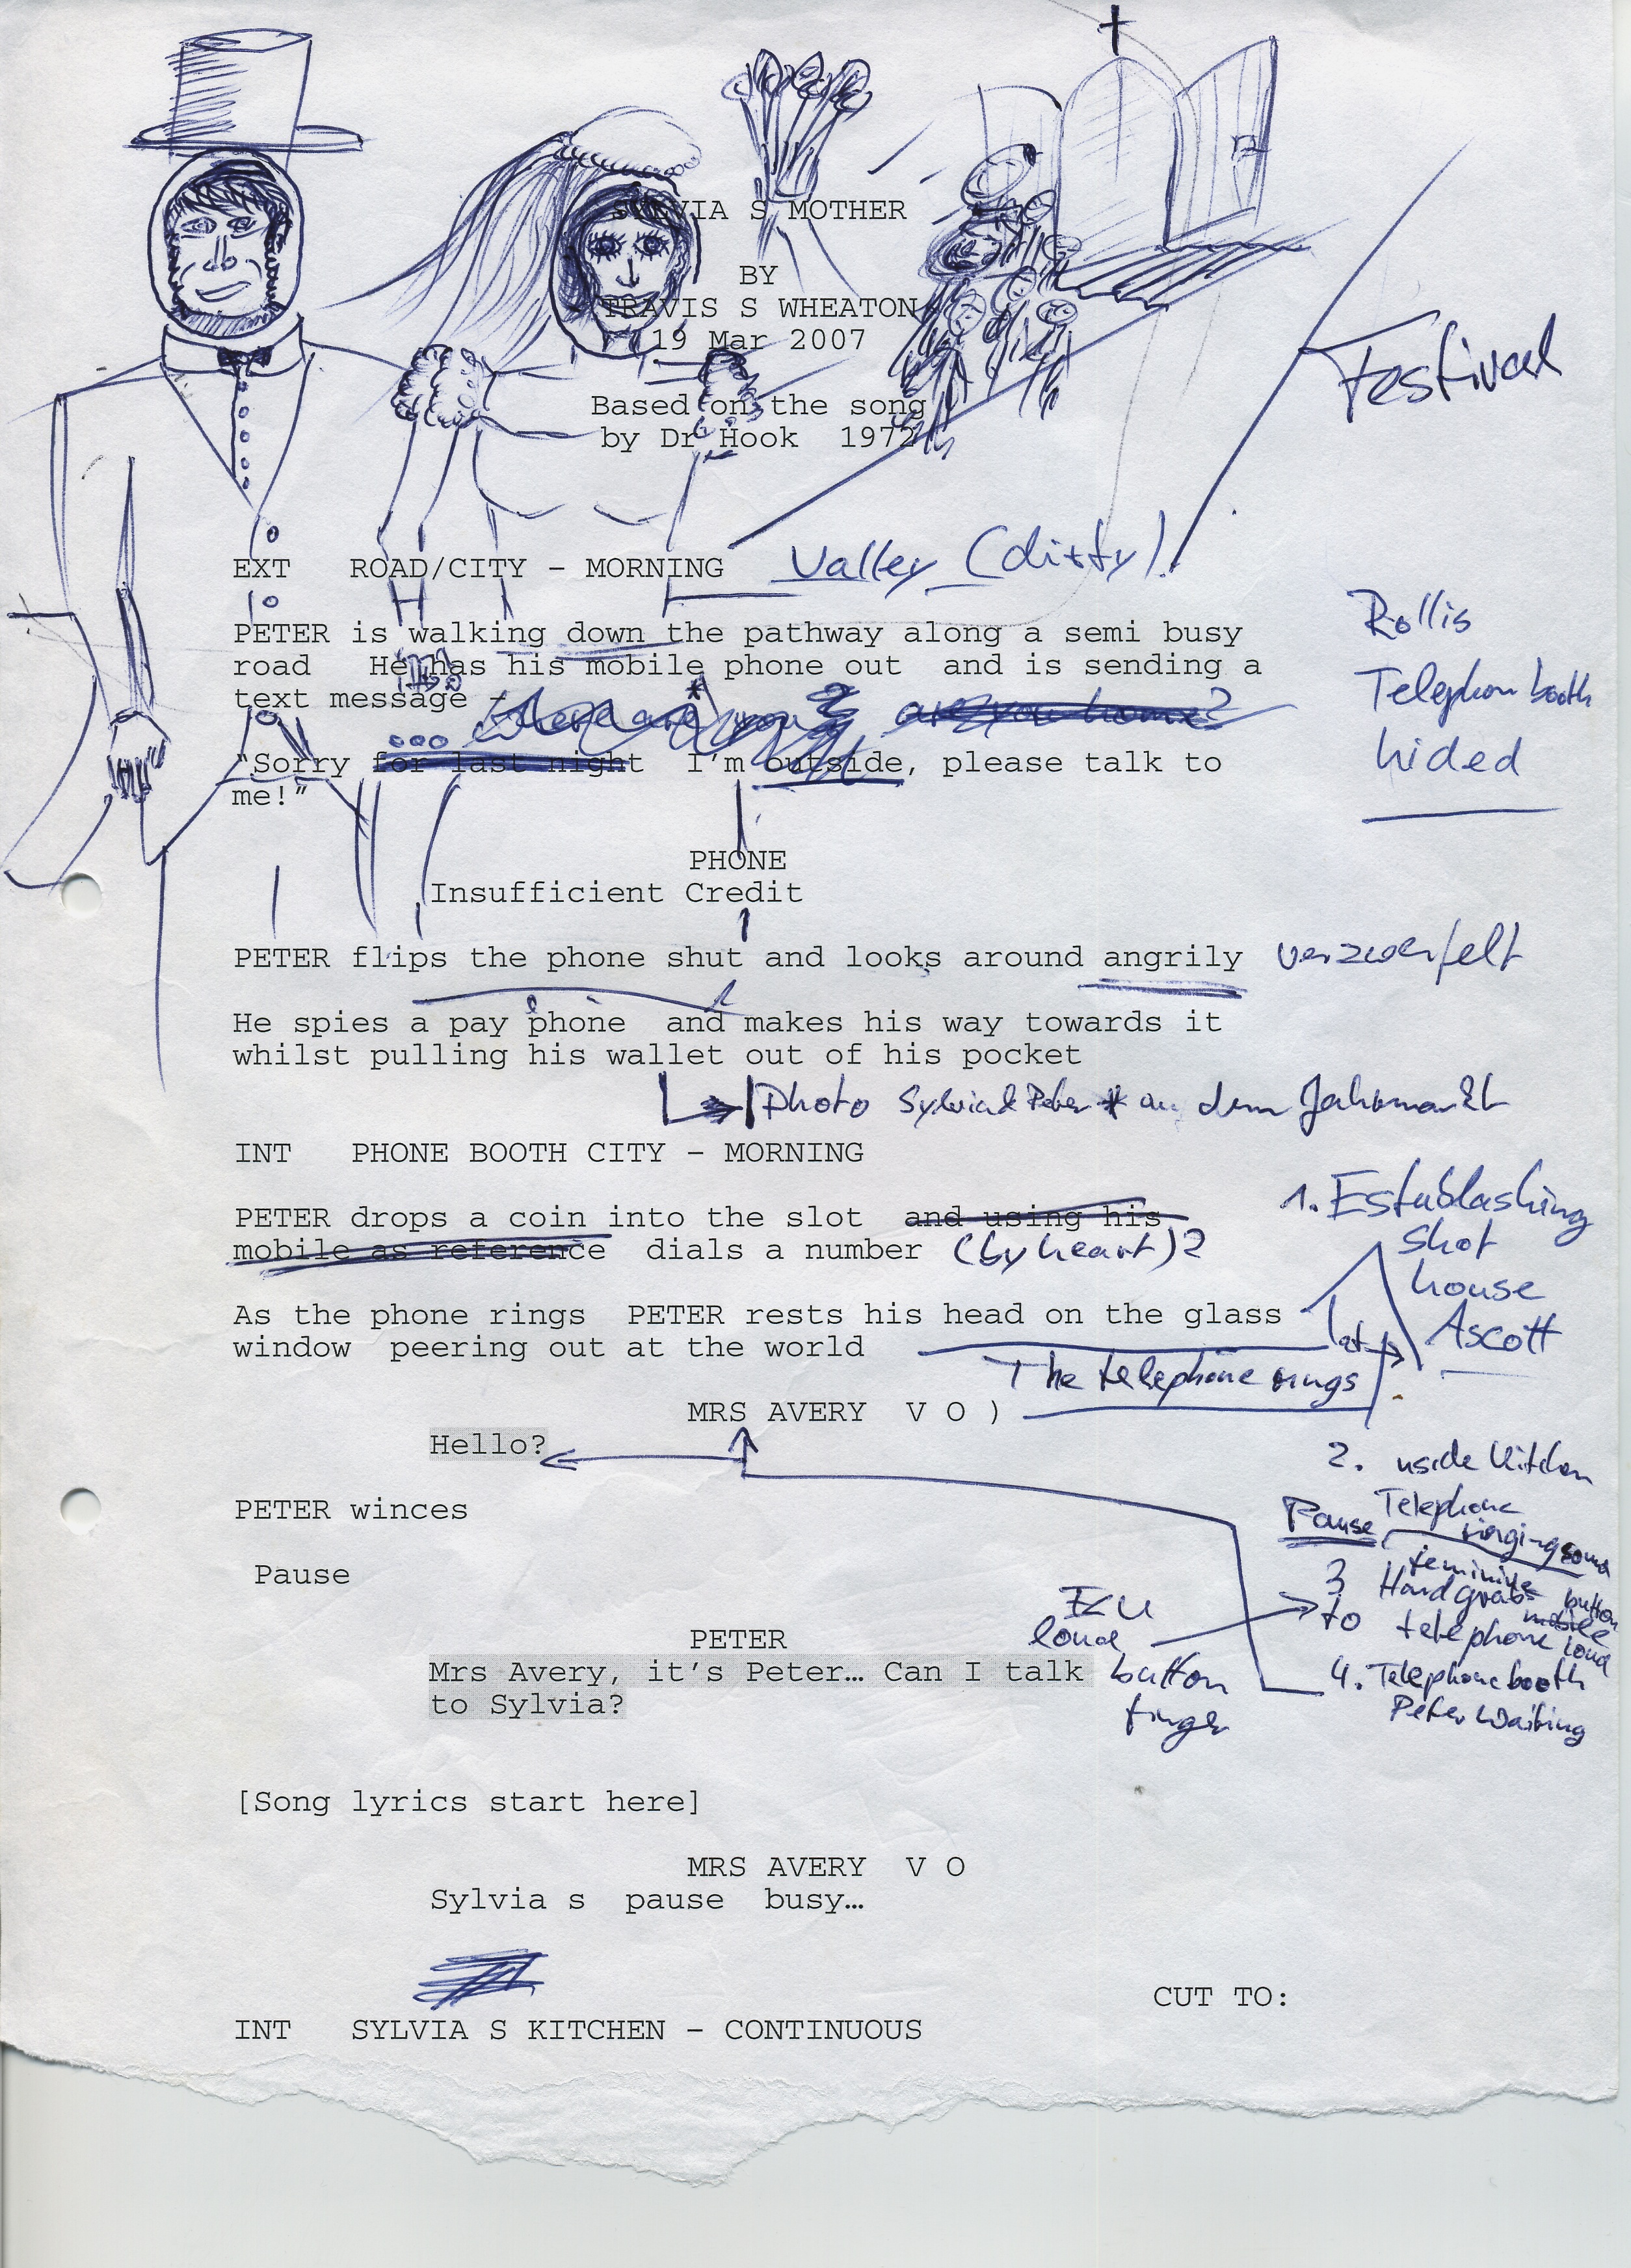 SYLVIA S MOTHER
BY
TRAVIS S WHEATON
19 Mar 2007
Festival
Based on the song
by Dr Hook 1972
EXT ROAD/CITY – MORNING Valley (dirty)!
PETER is walking down the pathway along a semi busy
road He has his mobile phone out and is sending a
text message – where are you? are you home?
Rollis
Telephon booth
hided
... "Sorry for last night I'm outside, please talk to
me!"
PHONE
Insufficient Credit
PETER flips the phone shut and looks around angrily verzweifelt
He spies a pay phone and makes his way towards it
whilst pulling his wallet out of his pocket
Photo Sylvia & Peter * an dem Jahrmarkt
INT PHONE BOOTH CITY – MORNING
PETER drops a coin into the slot and using his
mobile as reference dials a number (by heart)?
1. Establashing
shot
house
Ascott
As the phone rings PETER rests his head on the glass
window peering out at the world
The telephone rings
MRS AVERY V O )
Hello?
2. inside Kitchen
Telephone
Pause
PETER winces
Pause
3 Hand grabs
feminine
to telephone
button
loud
4. Telephone booth
Peter Waiting
ECU
loud
button
finger
PETER
Mrs Avery, it's Peter… Can I talk
to Sylvia?
[Song lyrics start here]
MRS AVERY V O
Sylvia s pause busy…
CUT TO:
INT SYLVIA S KITCHEN – CONTINUOUS